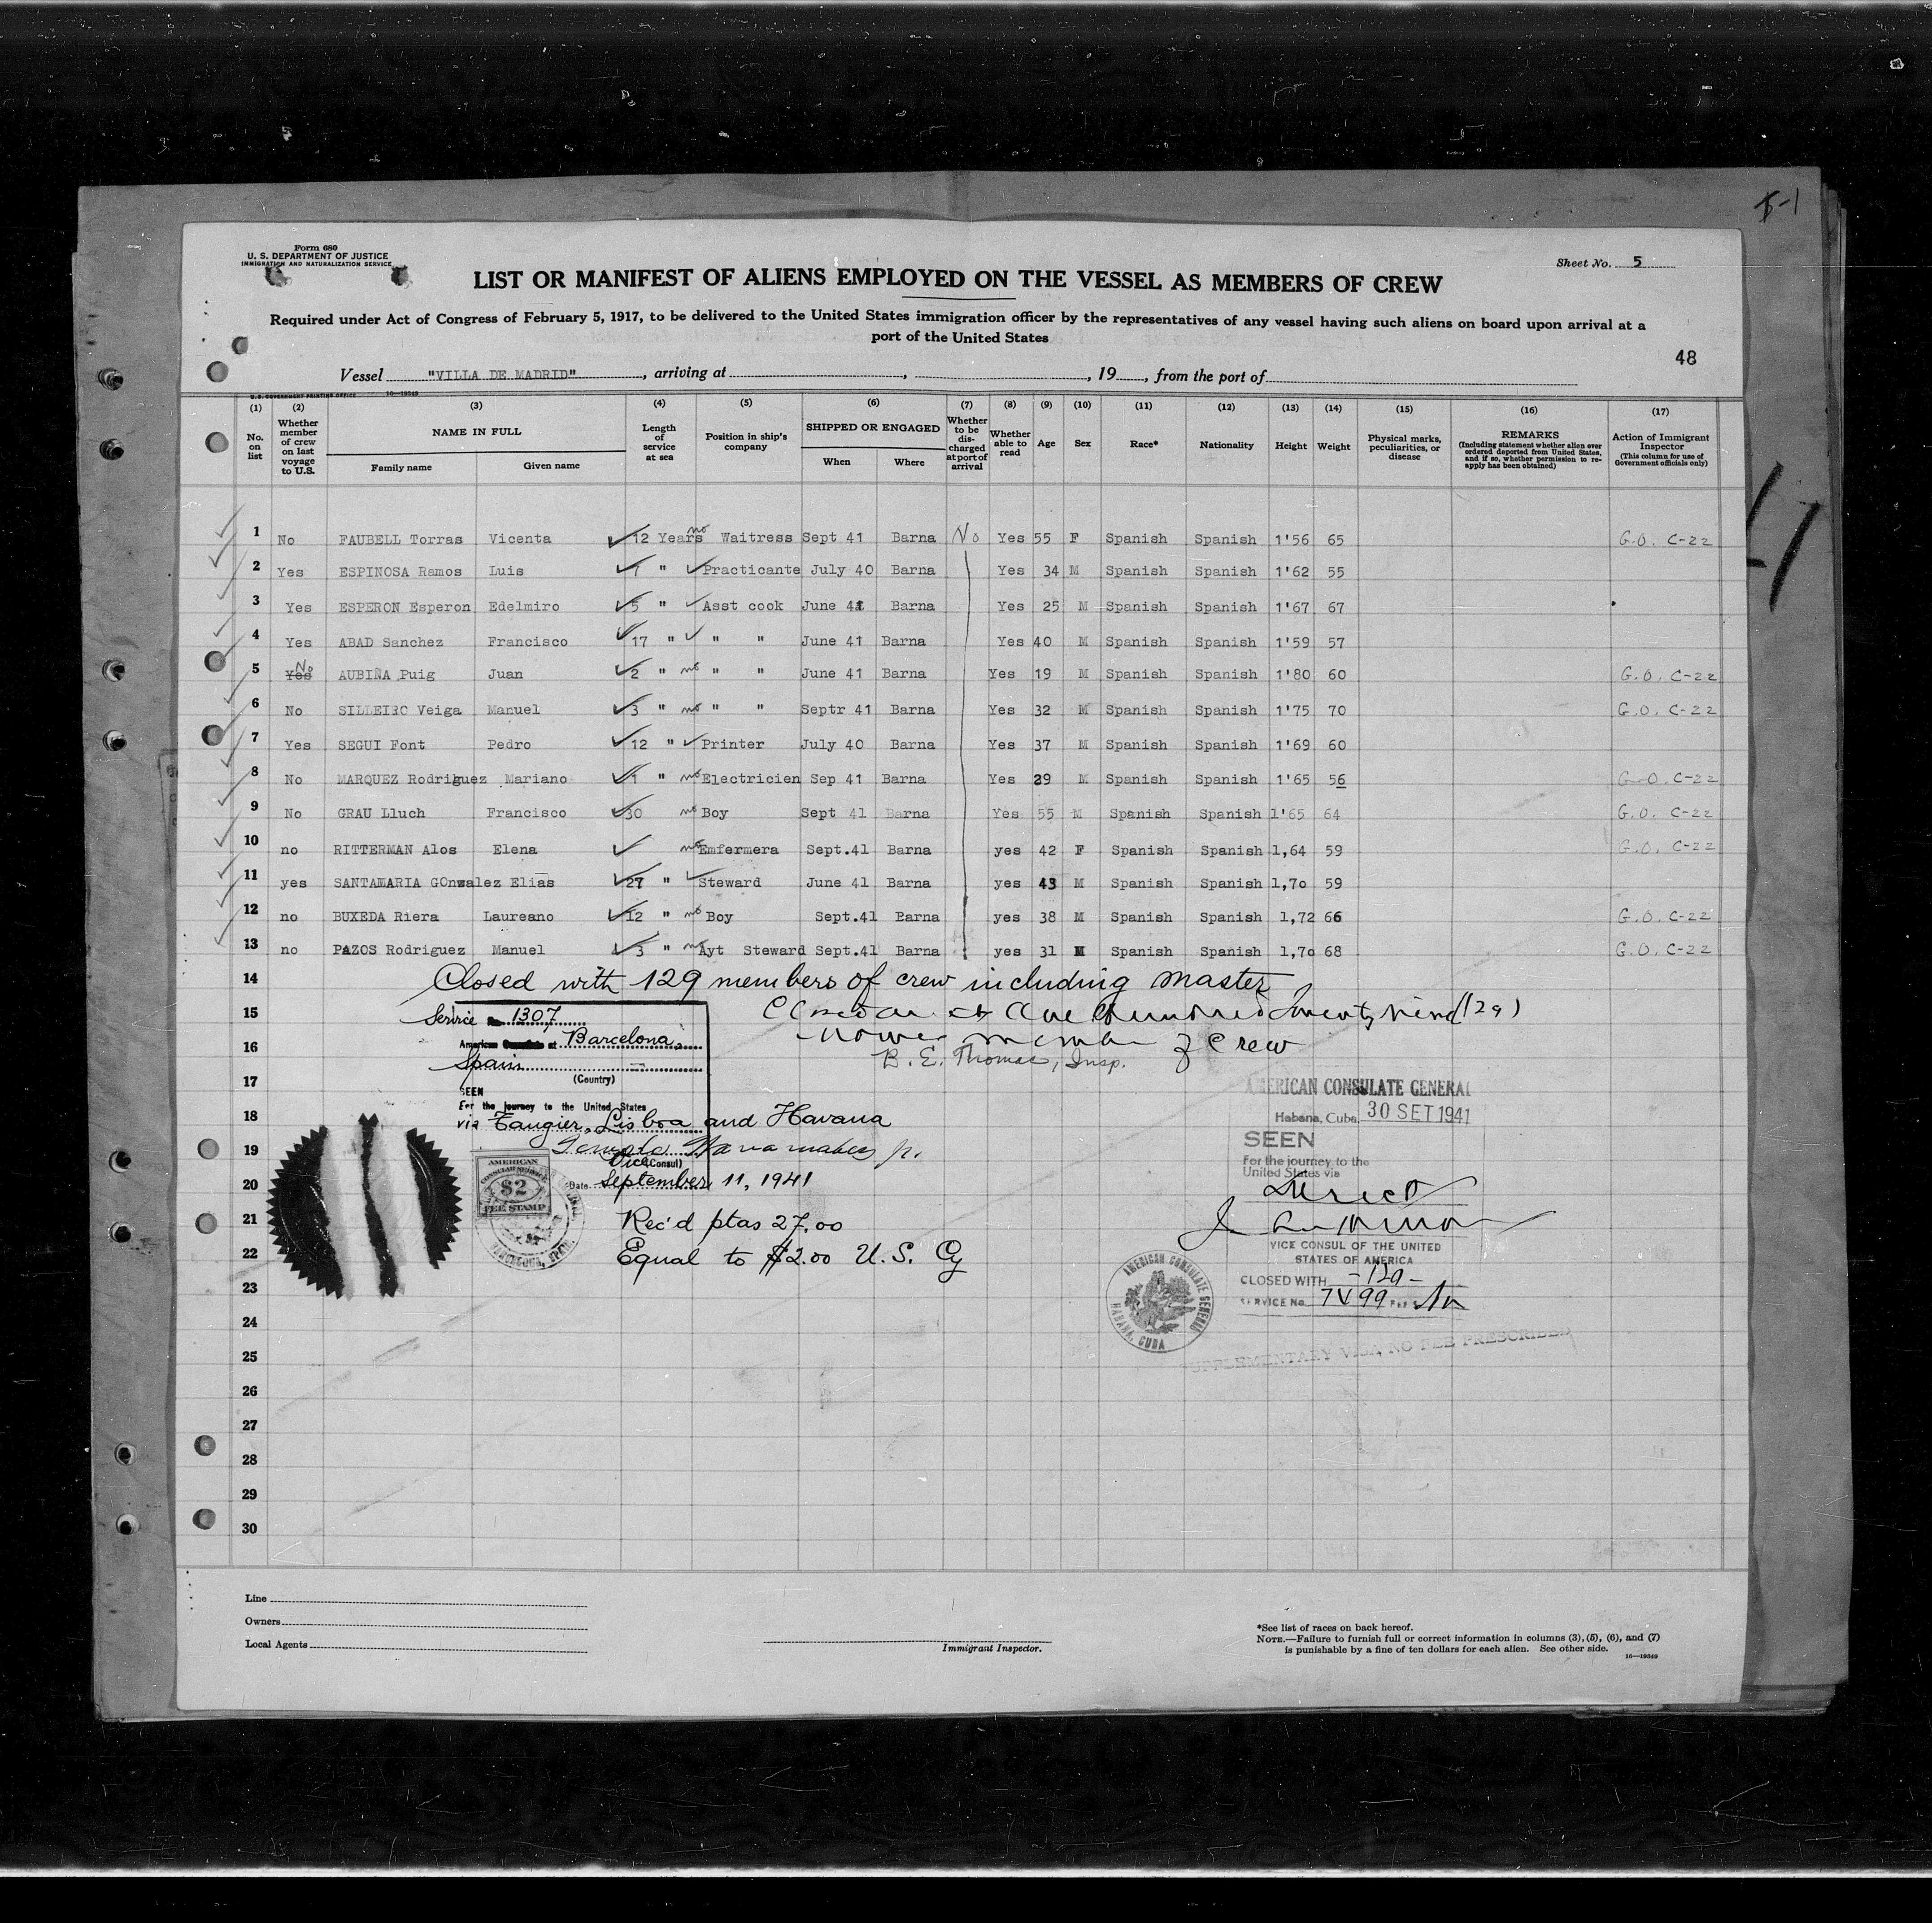 5-1
Form 680
U. S. DEPARTMENT OF JUSTICE
IMMIGRATION AND NATURALIZATION SERVICE
Sheet No. 5
LIST OR MANIFEST OF ALIENS EMPLOYED ON THE VESSEL AS MEMBERS OF CREW
Required under Act of Congress of February 5, 1917, to be delivered to the United States immigration officer by the representatives of any vessel having such aliens on board upon arrival at a
port of the United States
48
Vessel "VILLA DE MADRID", arriving at , , 19 , from the port of
U.S. GOVERNMENT PRINTING OFFICE 16—19349
(1) No. on list
(2) Whether member of crew on last voyage to U.S.
(3) NAME IN FULL Family name Given name
(4) Length of service at sea
(5) Position in ship's company
(6) SHIPPED OR ENGAGED When Where
(7) Whether to be discharged at port of arrival
(8) Whether able to read
(9) Age
(10) Sex
(11) Race*
(12) Nationality
(13) Height
(14) Weight
(15) Physical marks, peculiarities, or disease
(16) REMARKS (Including statement whether alien ever ordered deported from United States, and if so, whether permission to reapply has been obtained)
(17) Action of Immigrant Inspector (This column for use of Government officials only)
1 No FAUBELL Torras Vicenta 12 Years no Waitress Sept 41 Barna No Yes 55 F Spanish Spanish 1'56 65 G.O. C-22
2 Yes ESPINOSA Ramos Luis 7 " Practicante July 40 Barna Yes 34 M Spanish Spanish 1'62 55
3 Yes ESPERON Esperon Edelmiro 5 " Asst cook June 41 Barna Yes 25 M Spanish Spanish 1'67 67
4 Yes ABAD Sanchez Francisco 17 " " " June 41 Barna Yes 40 M Spanish Spanish 1'59 57
5 Yes No AUBIÑA Puig Juan 2 " no " " June 41 Barna Yes 19 M Spanish Spanish 1'80 60 G.O. C-22
6 No SILLEIRO Veiga Manuel 3 " no " " Septr 41 Barna Yes 32 M Spanish Spanish 1'75 70 G.O. C-22
7 Yes SEGUI Font Pedro 12 " Printer July 40 Barna Yes 37 M Spanish Spanish 1'69 60
8 No MARQUEZ Rodriguez Mariano 1 " no Electricien Sep 41 Barna Yes 29 M Spanish Spanish 1'65 56 G.O. C-22
9 No GRAU Lluch Francisco 30 no Boy Sept 41 Barna Yes 55 M Spanish Spanish 1'65 64 G.O. C-22
10 no RITTERMAN Alos Elena no Emfermera Sept.41 Barna yes 42 F Spanish Spanish 1,64 59 G.O. C-22
11 yes SANTAMARIA GOnzalez Elias 27 " Steward June 41 Barna yes 43 M Spanish Spanish 1,7o 59
12 no BUXEDA Riera Laureano 12 " no Boy Sept.41 Barna yes 38 M Spanish Spanish 1,72 66 G.O. C-22
13 no PAZOS Rodriguez Manuel 3 " no Ayt Steward Sept.41 Barna yes 31 M Spanish Spanish 1,7o 68 G.O. C-22
14 Closed with 129 members of crew including master
15
16
17
18
19
20
21
22
23
24
25
26
27
28
29
30
Service No. 1307
American Consulate at Barcelona,
Spain
(Country)
SEEN
For the journey to the United States
via Tangier, Lisboa and Havana
Vice Consul
Date September 11, 1941
AMERICAN
CONSULAR SERVICE
$2
FEE STAMP
Rec'd ptas 27.00
Equal to $2.00 U.S. Cy
One Hundred Twenty nine (129)
member of Crew
B. E. Thomas, Insp.
AMERICAN CONSULATE GENERAL
Habana, Cuba, 30 SET 1941
SEEN
For the journey to the
United States via
Direct
VICE CONSUL OF THE UNITED
STATES OF AMERICA
CLOSED WITH -129-
SERVICE No.
AMERICAN CONSULATE GENERAL
HABANA, CUBA
SUPPLEMENTARY VISA, NO FEE PRESCRIBED
Line
Owners
Local Agents
Immigrant Inspector.
*See list of races on back hereof.
NOTE.—Failure to furnish full or correct information in columns (3), (5), (6), and (7)
is punishable by a fine of ten dollars for each alien. See other side.
16—19349